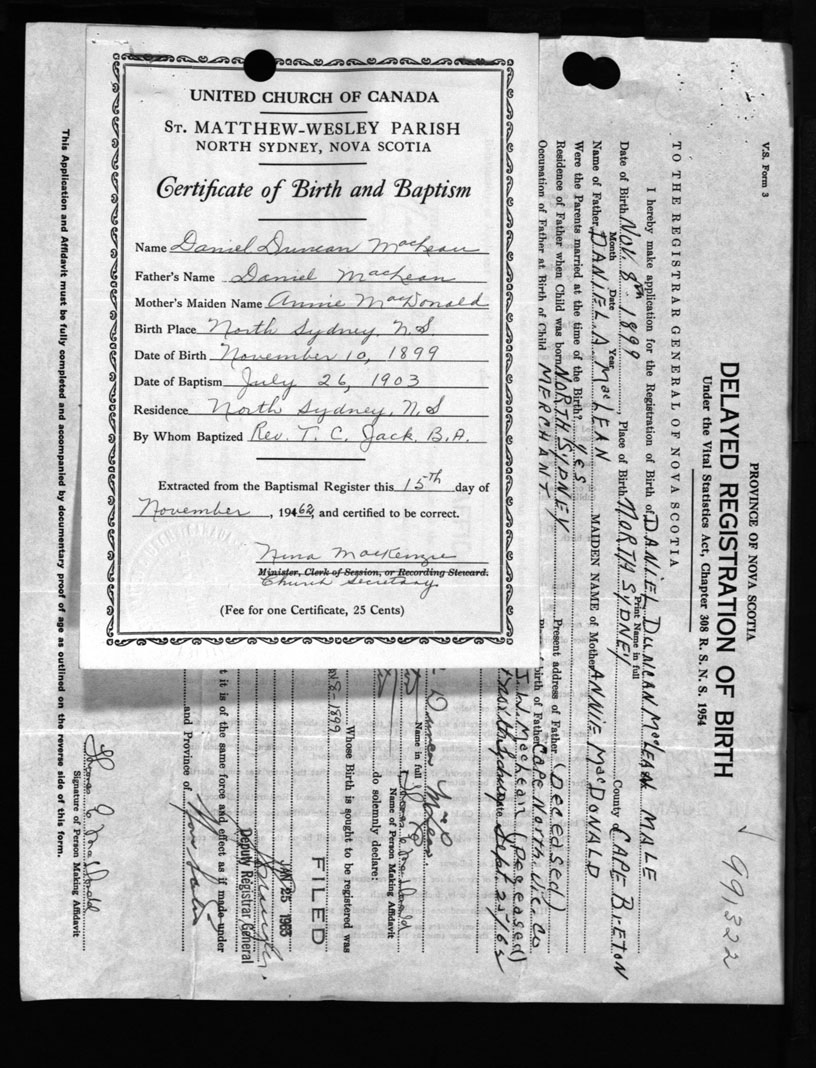 UNITED CHURCH OF CANADA
ST. MATTHEW-WESLEY PARISH
NORTH SYDNEY, NOVA SCOTIA
Certificate of Birth and Baptism
Name Daniel Duncan MacLean
Father's Name Daniel MacLean
Mother's Maiden Name Annie MacDonald
Birth Place North Sydney, N.S
Date of Birth November 10, 1899
Date of Baptism July 26, 1903
Residence North Sydney, N.S
By Whom Baptized Rev. T. C. Jack, B.A.
Extracted from the Baptismal Register this 15th day of
November, 1962, and certified to be correct.
Nina MacKenzie
Minister, Clerk of Session, or Recording Steward.
Church Secretary
(Fee for one Certificate, 25 Cents)
V.S. Form 3
PROVINCE OF NOVA SCOTIA
DELAYED REGISTRATION OF BIRTH
Under the Vital Statistics Act, Chapter 308 R. S. N. S. 1954
991322
TO THE REGISTRAR GENERAL OF NOVA SCOTIA
I hereby make application for the Registration of Birth of DANIEL DUNCAN McLEAN MALE
Print Name in full
Date of Birth NOV. 8th 1899, Place of Birth NORTH SYDNEY County CAPE BRETON
Month Date Year
Name of Father DANIEL A. MacLEAN MAIDEN NAME of Mother ANNIE MacDONALD
Were the Parents married at the time of the Birth? YES
Residence of Father when Child was born NORTH SYDNEY Present address of Father (Deceased)
Occupation of Father at Birth of Child MERCHANT birth of Father Cape North Vic. Co
J. W. MacLean (Deceased)
North Sydney Sept. 23/62
Duncan McLean
Name in full
Name of Person Making Affidavit
do solemnly declare:
Whose Birth is sought to be registered was
8-1899
FILED
JAN 25 1963
Deputy Registrar General
t it is of the same force and effect as if made under
and Province of Nova Scotia
Signature of Person Making Affidavit
This Application and Affidavit must be fully completed and accompanied by documentary proof of age as outlined on the reverse side of this form.